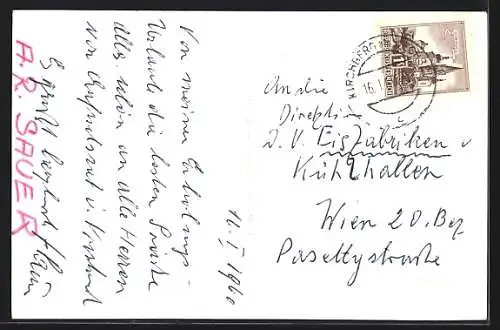 Von meinem Erholungs-
Urlaub die besten Grüsse
alles Schön an alle Herren
von Aufsichtsrat u. Vorstand
Es grüsst
A. R. SAUER
16. I 1960
KIRCHBERG
16. I.
An die
Direktion
d. V. Eisfabriken u
Kühlhallen
Wien 20. Bez
Pasettistrasse